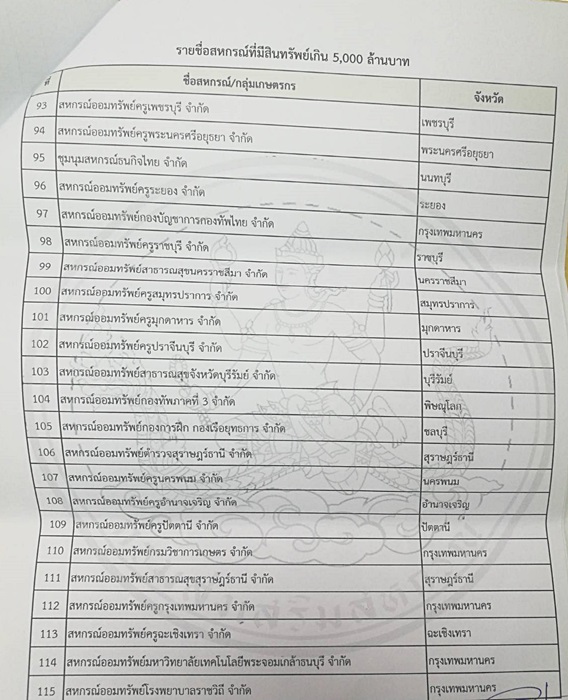 รายชื่อสหกรณ์ที่มีสินทรัพย์เกิน 5,000 ล้านบาท
ที่ ชื่อสหกรณ์/กลุ่มเกษตรกร จังหวัด
93 สหกรณ์ออมทรัพย์ครูเพชรบุรี จำกัด เพชรบุรี
94 สหกรณ์ออมทรัพย์ครูพระนครศรีอยุธยา จำกัด พระนครศรีอยุธยา
95 ชุมนุมสหกรณ์ธนกิจไทย จำกัด นนทบุรี
96 สหกรณ์ออมทรัพย์ครูระยอง จำกัด ระยอง
97 สหกรณ์ออมทรัพย์กองบัญชาการกองทัพไทย จำกัด กรุงเทพมหานคร
98 สหกรณ์ออมทรัพย์ครูราชบุรี จำกัด ราชบุรี
99 สหกรณ์ออมทรัพย์สาธารณสุขนครราชสีมา จำกัด นครราชสีมา
100 สหกรณ์ออมทรัพย์ครูสมุทรปราการ จำกัด สมุทรปราการ
101 สหกรณ์ออมทรัพย์ครูมุกดาหาร จำกัด มุกดาหาร
102 สหกรณ์ออมทรัพย์ครูปราจีนบุรี จำกัด ปราจีนบุรี
103 สหกรณ์ออมทรัพย์สาธารณสุขจังหวัดบุรีรัมย์ จำกัด บุรีรัมย์
104 สหกรณ์ออมทรัพย์กองทัพภาคที่ 3 จำกัด พิษณุโลก
105 สหกรณ์ออมทรัพย์กองการฝึก กองเรือยุทธการ จำกัด ชลบุรี
106 สหกรณ์ออมทรัพย์ตำรวจสุราษฎร์ธานี จำกัด สุราษฎร์ธานี
107 สหกรณ์ออมทรัพย์ครูนครพนม จำกัด นครพนม
108 สหกรณ์ออมทรัพย์ครูอำนาจเจริญ จำกัด อำนาจเจริญ
109 สหกรณ์ออมทรัพย์ครูปัตตานี จำกัด ปัตตานี
110 สหกรณ์ออมทรัพย์กรมวิชาการเกษตร จำกัด กรุงเทพมหานคร
111 สหกรณ์ออมทรัพย์สาธารณสุขสุราษฎร์ธานี จำกัด สุราษฎร์ธานี
112 สหกรณ์ออมทรัพย์ครูกรุงเทพมหานคร จำกัด กรุงเทพมหานคร
113 สหกรณ์ออมทรัพย์ครูฉะเชิงเทรา จำกัด ฉะเชิงเทรา
114 สหกรณ์ออมทรัพย์มหาวิทยาลัยเทคโนโลยีพระจอมเกล้าธนบุรี จำกัด กรุงเทพมหานคร
115 สหกรณ์ออมทรัพย์โรงพยาบาลราชวิถี จำกัด กรุงเทพมหานคร